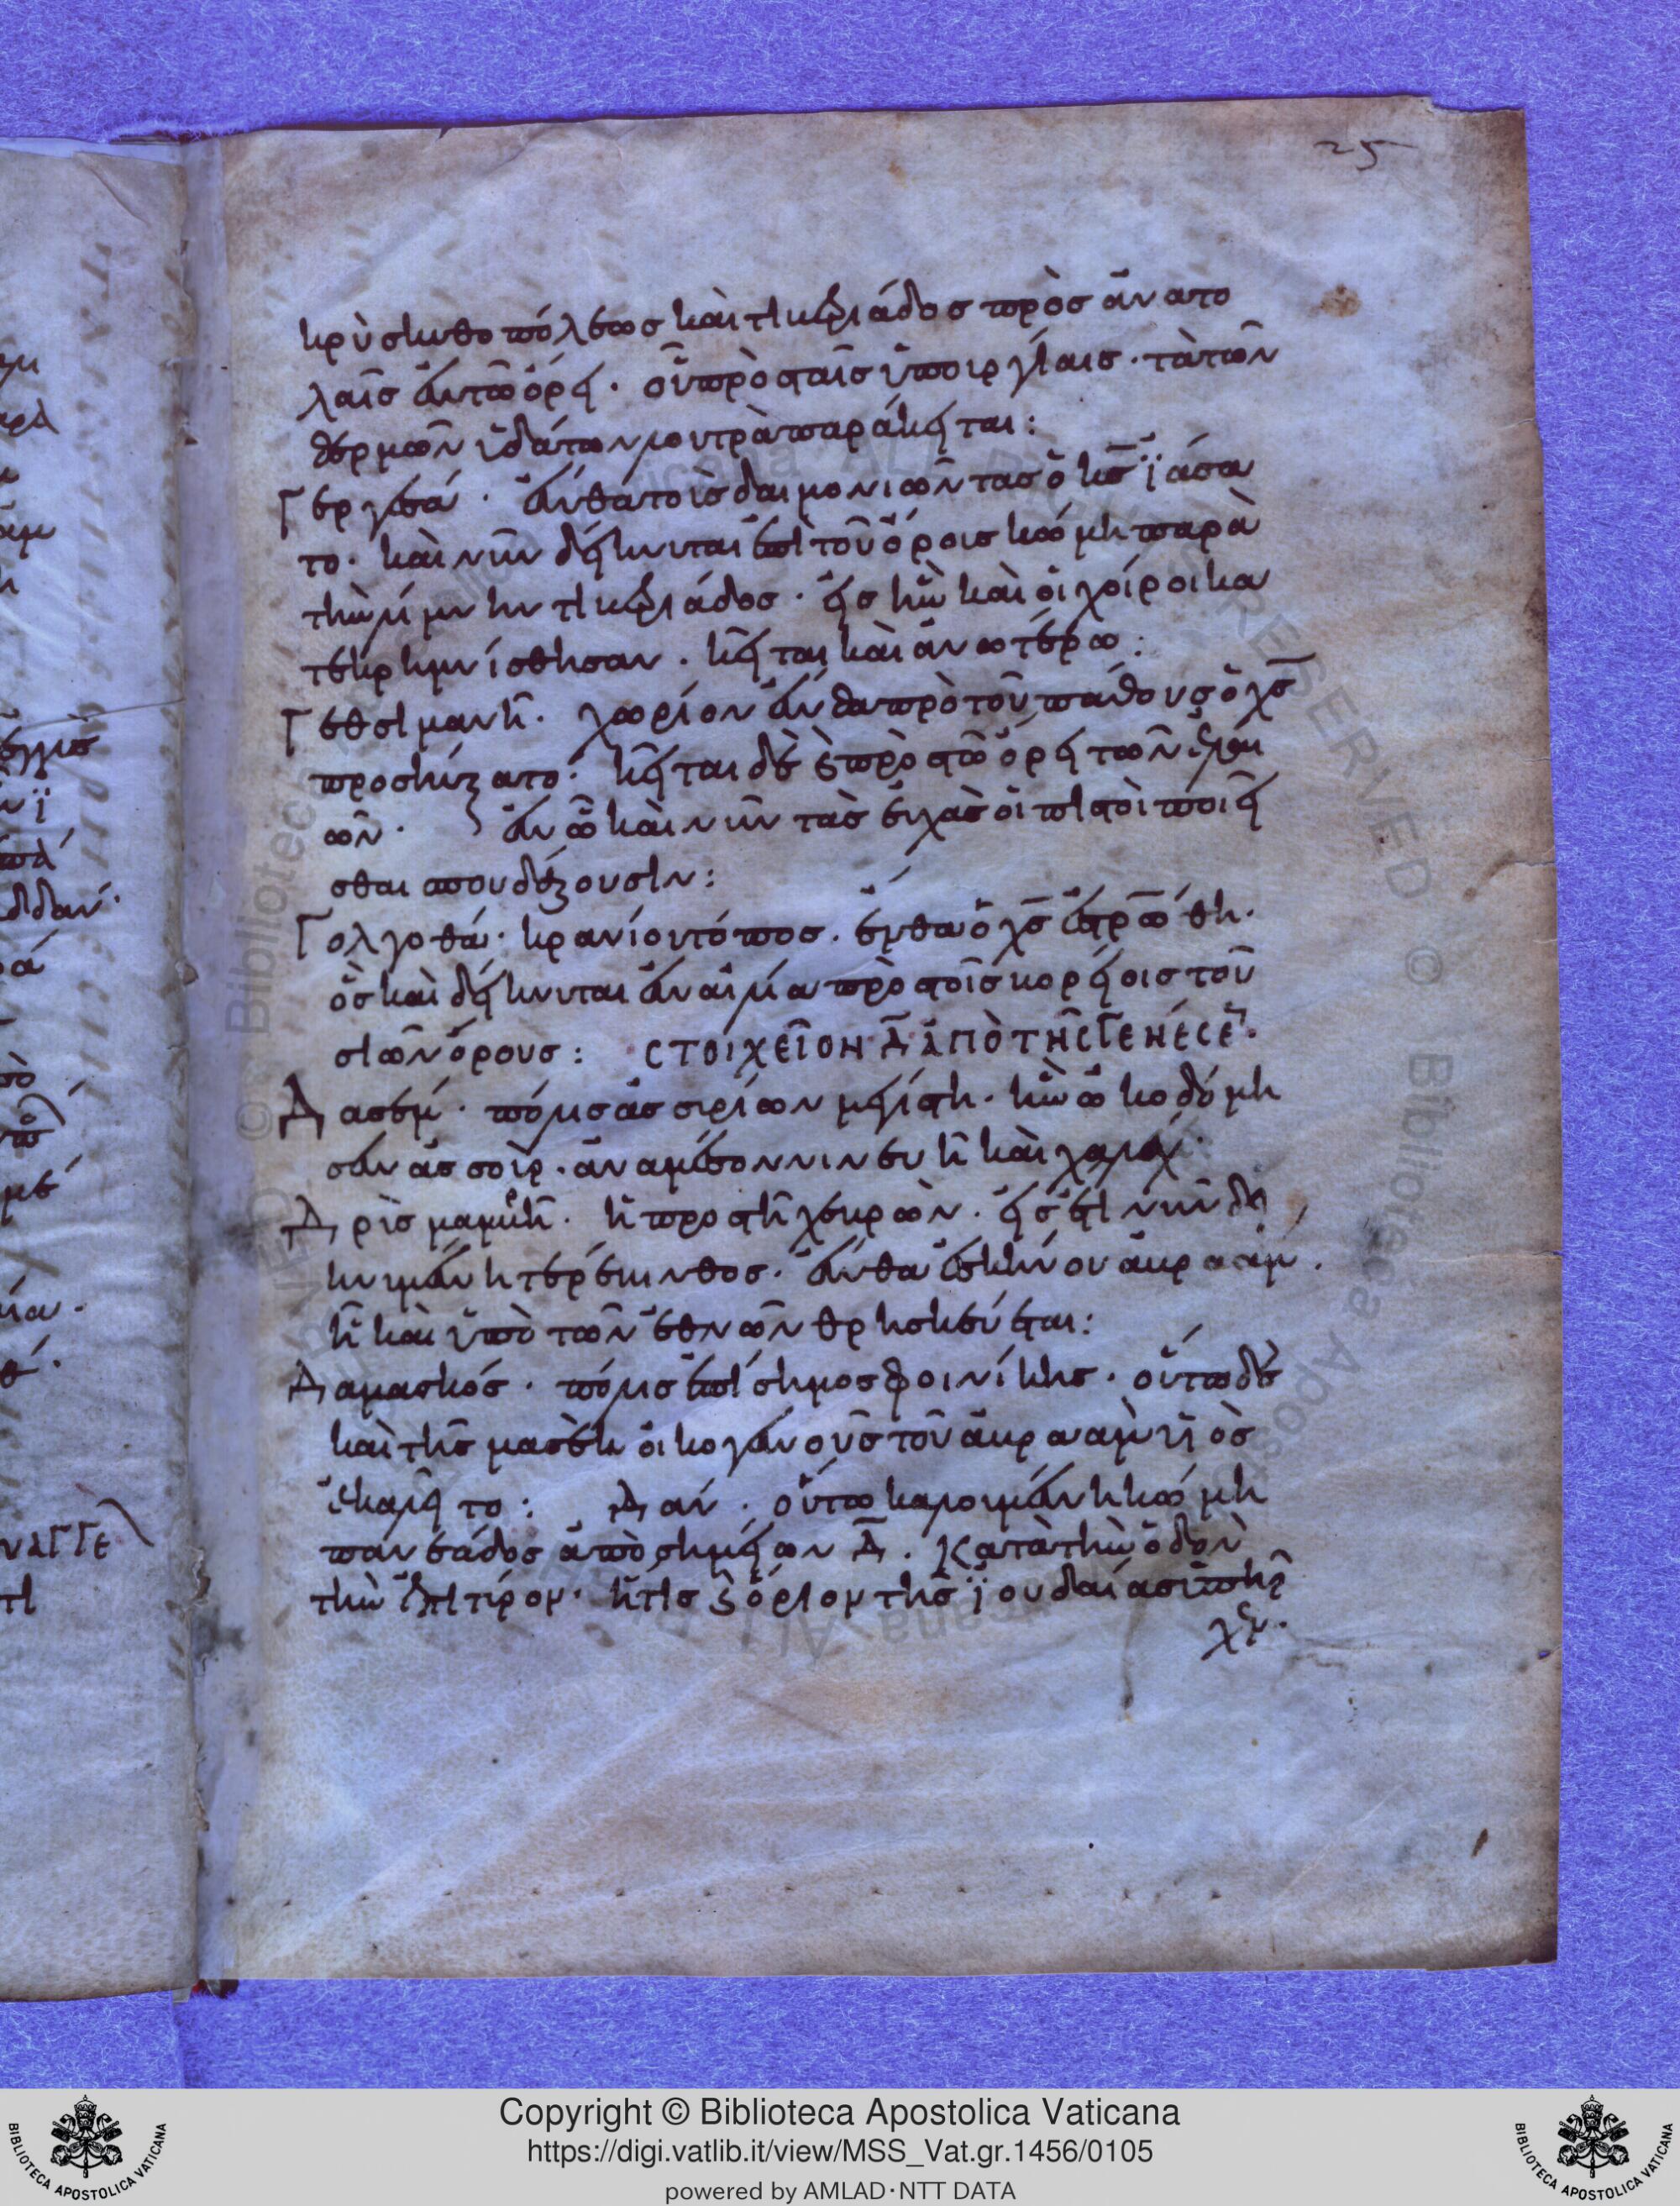 25
κρὺ σκυθοπόλεως καὶ τιβεριάδος πρὸς ἀνατο
λαῖς ἐν τῶ ὄρει. οὗ πρὸς ταῖς ὑπουργίαις. τὰ τῶν
θερμῶν ὑδάτων λουτρὰ παράκειται:
Γεργεσά. ἔνθα τοὺς δαιμονιῶντας ὁ κ̅ς̅ ϊάσα
το. καὶ νῦν δείκνυται ἐπὶ τοῦ ὄρους κώμη παρὰ
τὴν λίμνην τιβεριάδος. εἰς ἣν καὶ οἱ χοίροι κα
τεκρημνίσθησαν. κεῖται καὶ ἀνωτέρω:
Γεθσιμανῆ. χωρίον ἔνθα πρὸ τοῦ πάθους ὁ χ̅ς̅
προσηύξατο. κεῖται δὲ ϛ πρὸς τῶ ὄρει τῶν ἐλαι
ῶν. ἐν ῶ καὶ νῦν τὰς εὐχὰς οἱ πιστοὶ ποιεῖ
σθαι σπουδάζουσιν:
Γολγοθά. κρανίου τόπος. ἔνθα ὁ χ̅ς̅ ἐστρώθη.
ὃς καὶ δείκνυται ἐν αἰλία πρὸς τοῖς βορείοις τοῦ
σιὼν ὄρους: ϹΤΟΙΧΕῖΟΝ Δ̅ ἀΠὸ ΤῆϹ ΓΕΝέϹΕ
Δασέμ. πόλις ἀσσυρίων μεγίστη. ἣν ὠκοδόμη
σεν ἀσσοὺρ. ἀναμέσον νινευῆ καὶ χαλάχ.
Δρῦς μαμβρῆ. ἡ πρὸς τῆ χεβρὼν. εἰς ἔτι νῦν δει
κνυμένη τερέβινθος. ἔνθα ἐσκήνου ἀβρααμ.
ἣ καὶ ὑπὸ τῶν ἐθνῶν θρησκεύεται:
Δαμασκός. πόλις ἐπίσημος φοινίκης. οὕτω δὲ
καὶ τῆς μασὲκ οἰκογενοῦς τοῦ ἀβρααμ υἱὸς
ἐκαλεῖτο: Δάν. οὕτω καλουμένη κώμη
πανεάδος ἀπὸ σημείων Δ̅. κατὰ τὴν ὁδὸν
τὴν ἐπὶ τύρον. ἥτις ϛ ὅριον τῆς ϊουδαίας ὑπῆρ
χεν.
Copyright © Biblioteca Apostolica Vaticana
https://digi.vatlib.it/view/MSS_Vat.gr.1456/0105
powered by AMLAD·NTT DATA
BIBLIOTECA APOSTOLICA VATICANA
BIBLIOTECA APOSTOLICA VATICANA